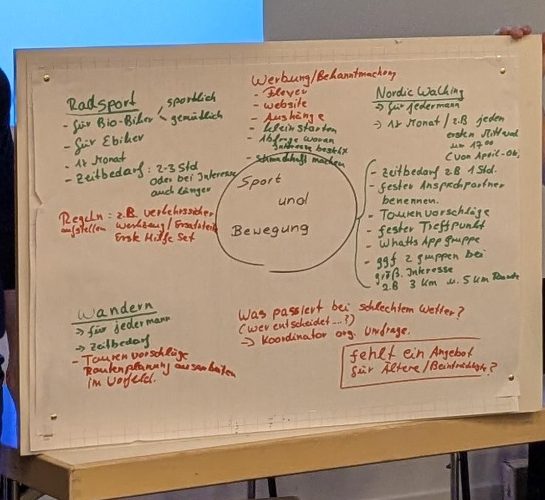 Radsport
- für Bio-Biker
sportlich
gemütlich
- für Ebiker
1x Monat
- Zeitbedarf: 2-3 Std
oder bei Interesse
auch länger
Regeln: z.B. verkehrssicher
aufstellen Werkzeug/Ersatzteile
Erste Hilfe Set
Werbung/Bekanntmachung
- Fleyer
- website
- Aushänge
- klein starten
- Abfrage woran
Interesse besteht
- schmackhaft machen
Sport
und
Bewegung
Nordic Walking
→ für Jedermann
→ 1x Monat / z.B jeden
ersten Mittwoch
um 17 00
(von April-Ok.
- Zeitbedarf z.B 1 Std.
- fester Ansprechpartner
benennen.
- Tourenvorschläge
- fester Treffpunkt
- WhattsApp gruppe
- ggf 2 gruppen bei
größ. Interesse
z.B 3 km u. 5 km Route
Wandern
→ für jedermann
→ Zeitbedarf
- Tourenvorschläge
Routenplanung ausarbeiten
im Vorfeld.
Was passiert bei schlechtem Wetter?
(wer entscheidet...?)
→ Koordinator org. Umfrage.
fehlt ein Angebot
für Ältere/Beeinträchtigte?